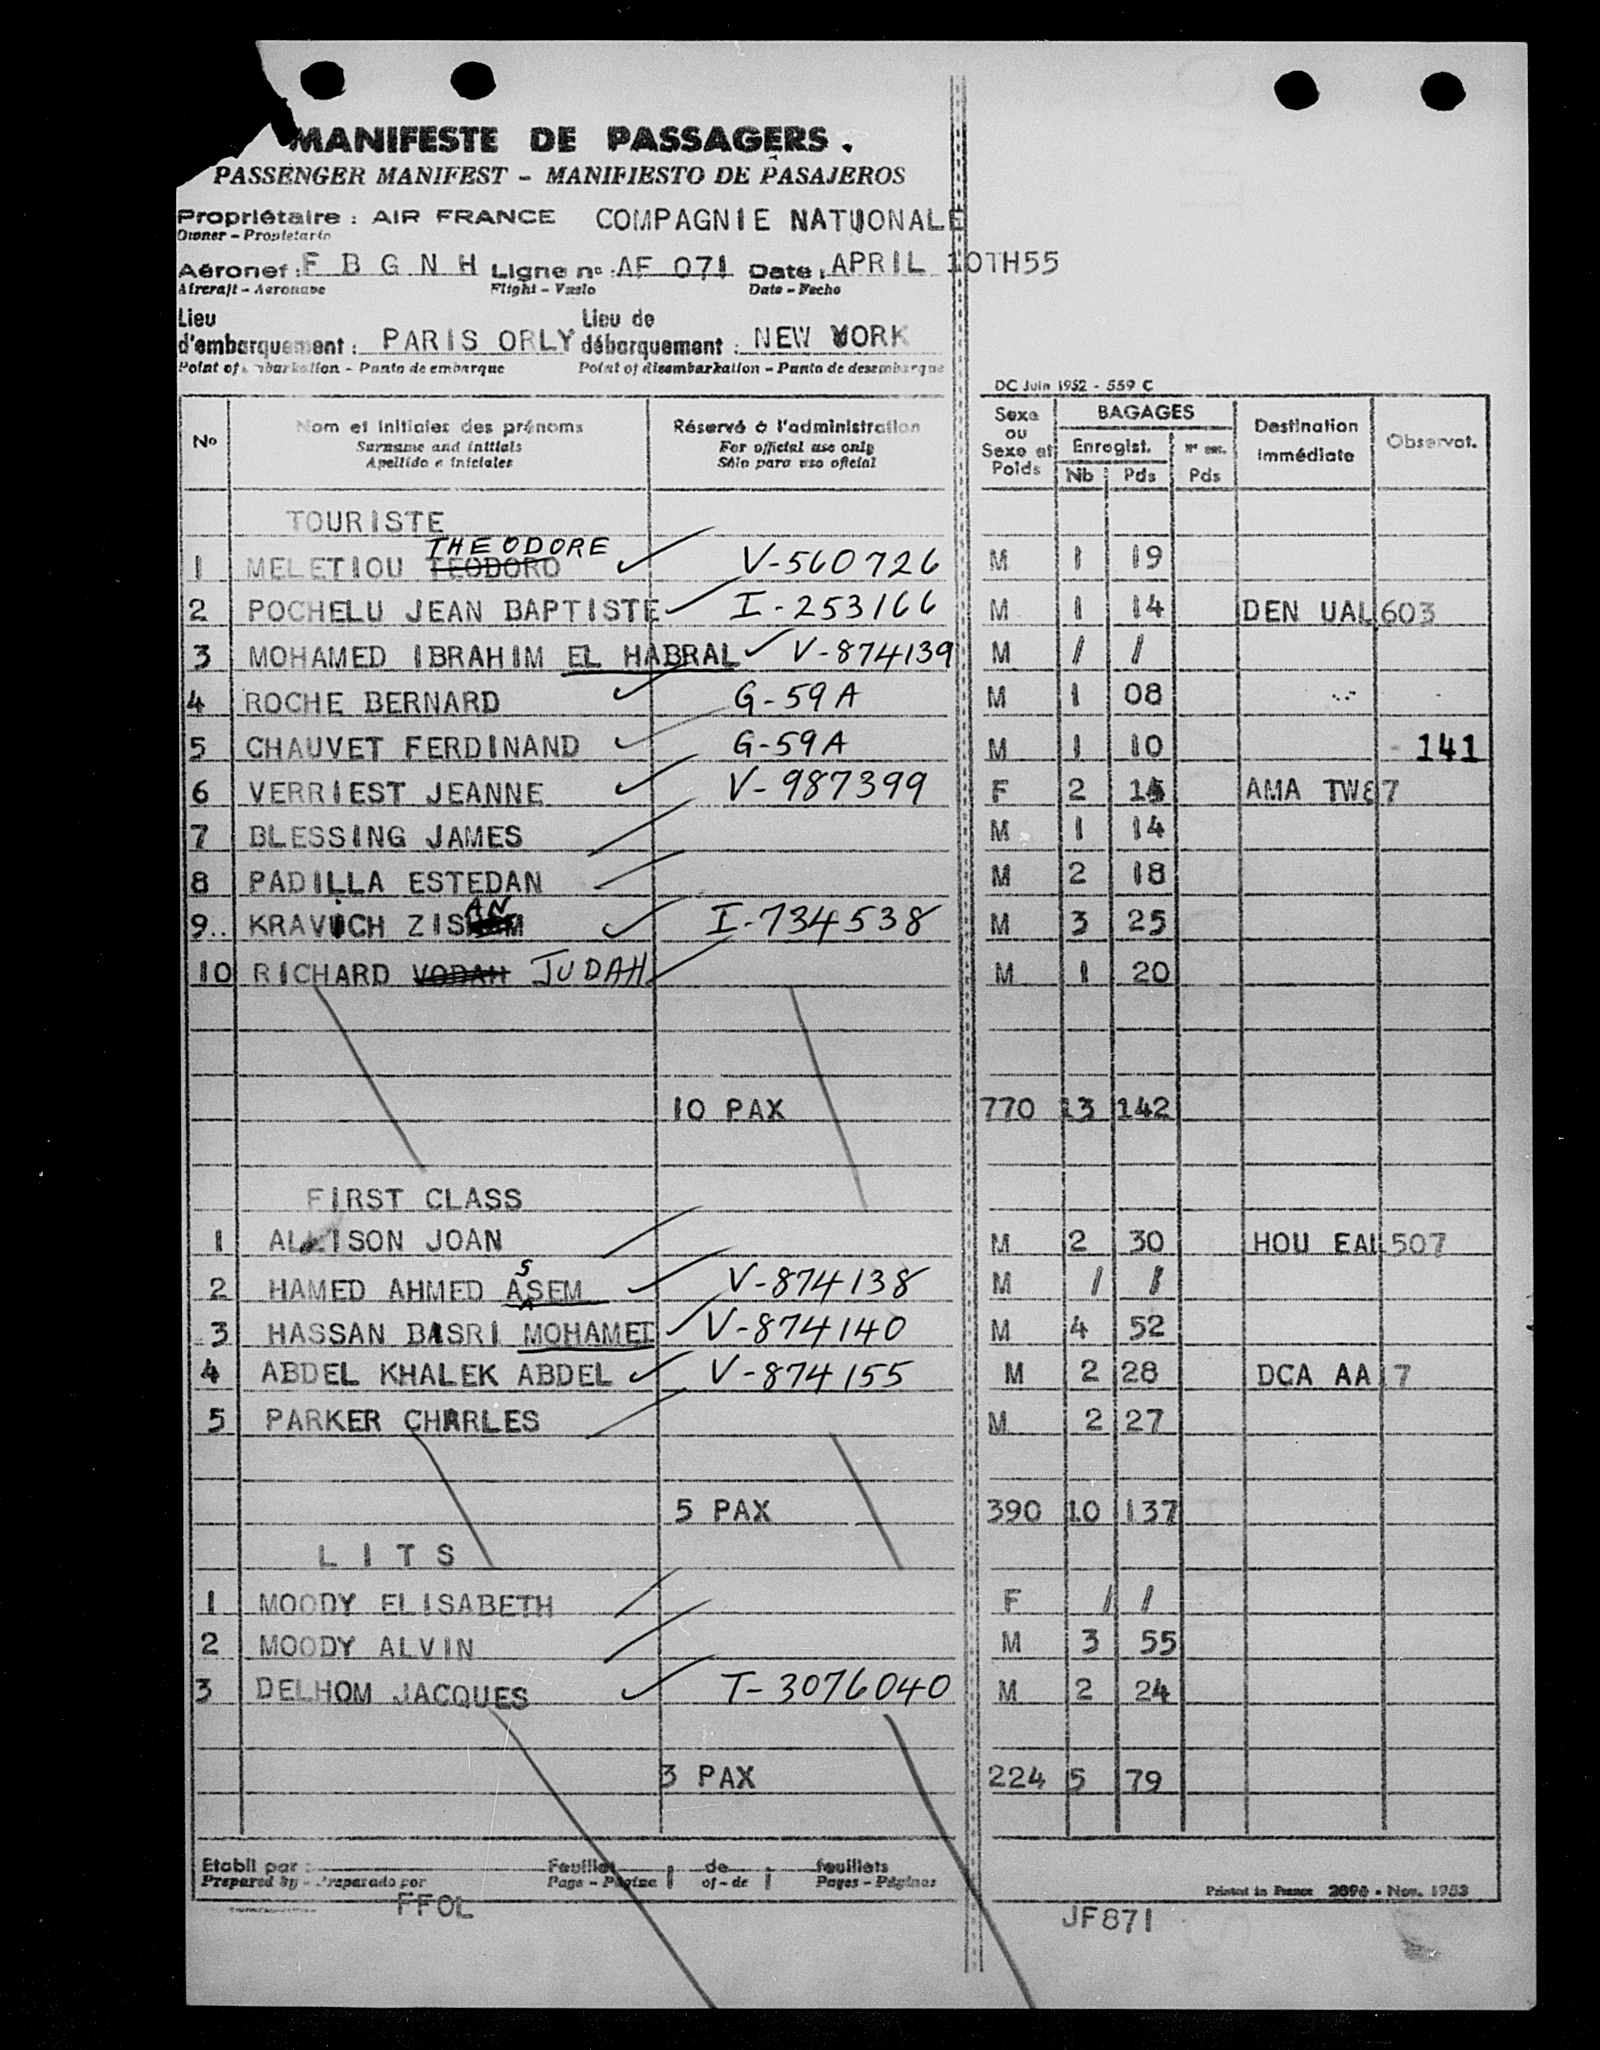 MANIFESTE DE PASSAGERS.
PASSENGER MANIFEST - MANIFIESTO DE PASAJEROS
Propriétaire : AIR FRANCE COMPAGNIE NATIONALE
Owner - Propietario
Aéronef : F B G N H Ligne nº : AF 071 Date : APRIL 10TH55
Aircraft - Aeronave Flight - Vuelo Date - Fecha
Lieu d'embarquement : PARIS ORLY Lieu de débarquement : NEW YORK
Point of embarkation - Punto de embarque Point of disembarkation - Punto de desembarque
DC Juin 1952 - 559 C
Nº Nom et initiales des prénoms Réservé à l'administration Sexe ou Sexe et Poids BAGAGES Destination immédiate Observat.
Surname and initials For official use only Enregist.
Apellido e iniciales Sólo para uso oficial Nb Pds Pds
TOURISTE
THEODORE
1 MELETIOU TEODORO V-560726 M 1 19
2 POCHELU JEAN BAPTISTE I-253166 M 1 14 DEN UAL 603
3 MOHAMED IBRAHIM EL HABRAL V-874139 M / /
4 ROCHE BERNARD G-59A M 1 08
5 CHAUVET FERDINAND G-59A M 1 10 141
6 VERRIEST JEANNE V-987399 F 2 14 AMA TW87
7 BLESSING JAMES M 1 14
8 PADILLA ESTEDAN M 2 18
AN
9.. KRAVICH ZIS I-734538 M 3 25
10 RICHARD VODAH JUDAH M 1 20
10 PAX 770 13 142
FIRST CLASS
1 ALLISON JOAN M 2 30 HOU EAL 507
S
2 HAMED AHMED ASEM V-874138 M / /
3 HASSAN BASRI MOHAMED V-874140 M 4 52
4 ABDEL KHALEK ABDEL V-874155 M 2 28 DCA AA 7
5 PARKER CHARLES M 2 27
5 PAX 390 10 137
L I T S
1 MOODY ELISABETH F / /
2 MOODY ALVIN M 3 55
3 DELHOM JACQUES T-3076040 M 2 24
3 PAX 224 5 79
Etabli par : Feuillet 1 de 1 feuillets
Prepared by - Preparado por Page - Página of - de Pages - Páginas
Printed in France 2096 - Nov. 1953
FFOL
JF871